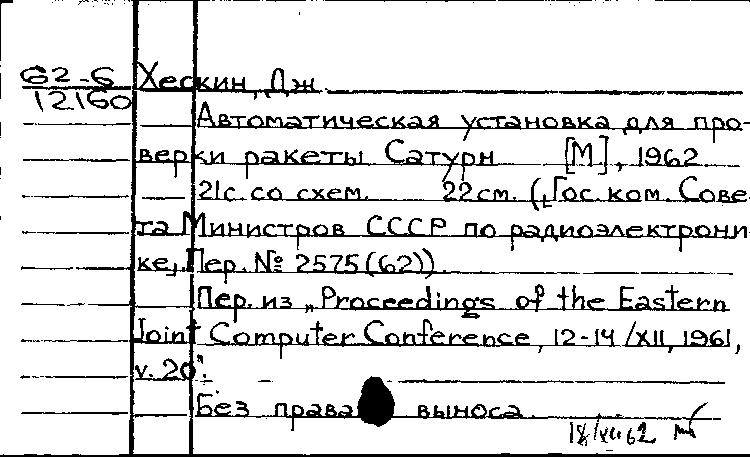 62-6 Хескин, Дж.
12160
Автоматическая установка для про-
верки ракеты Сатурн [М], 1962
21с. со схем. 22см. („Гос. ком. Сове-
та Министров СССР по радиоэлектрони-
ке„. Пер. № 2575(62)).
Пер. из „Proceedings of the Eastern
Joint Computer Conference, 12-14/XII, 1961,
v. 20".
Без права выноса
18/XII 62